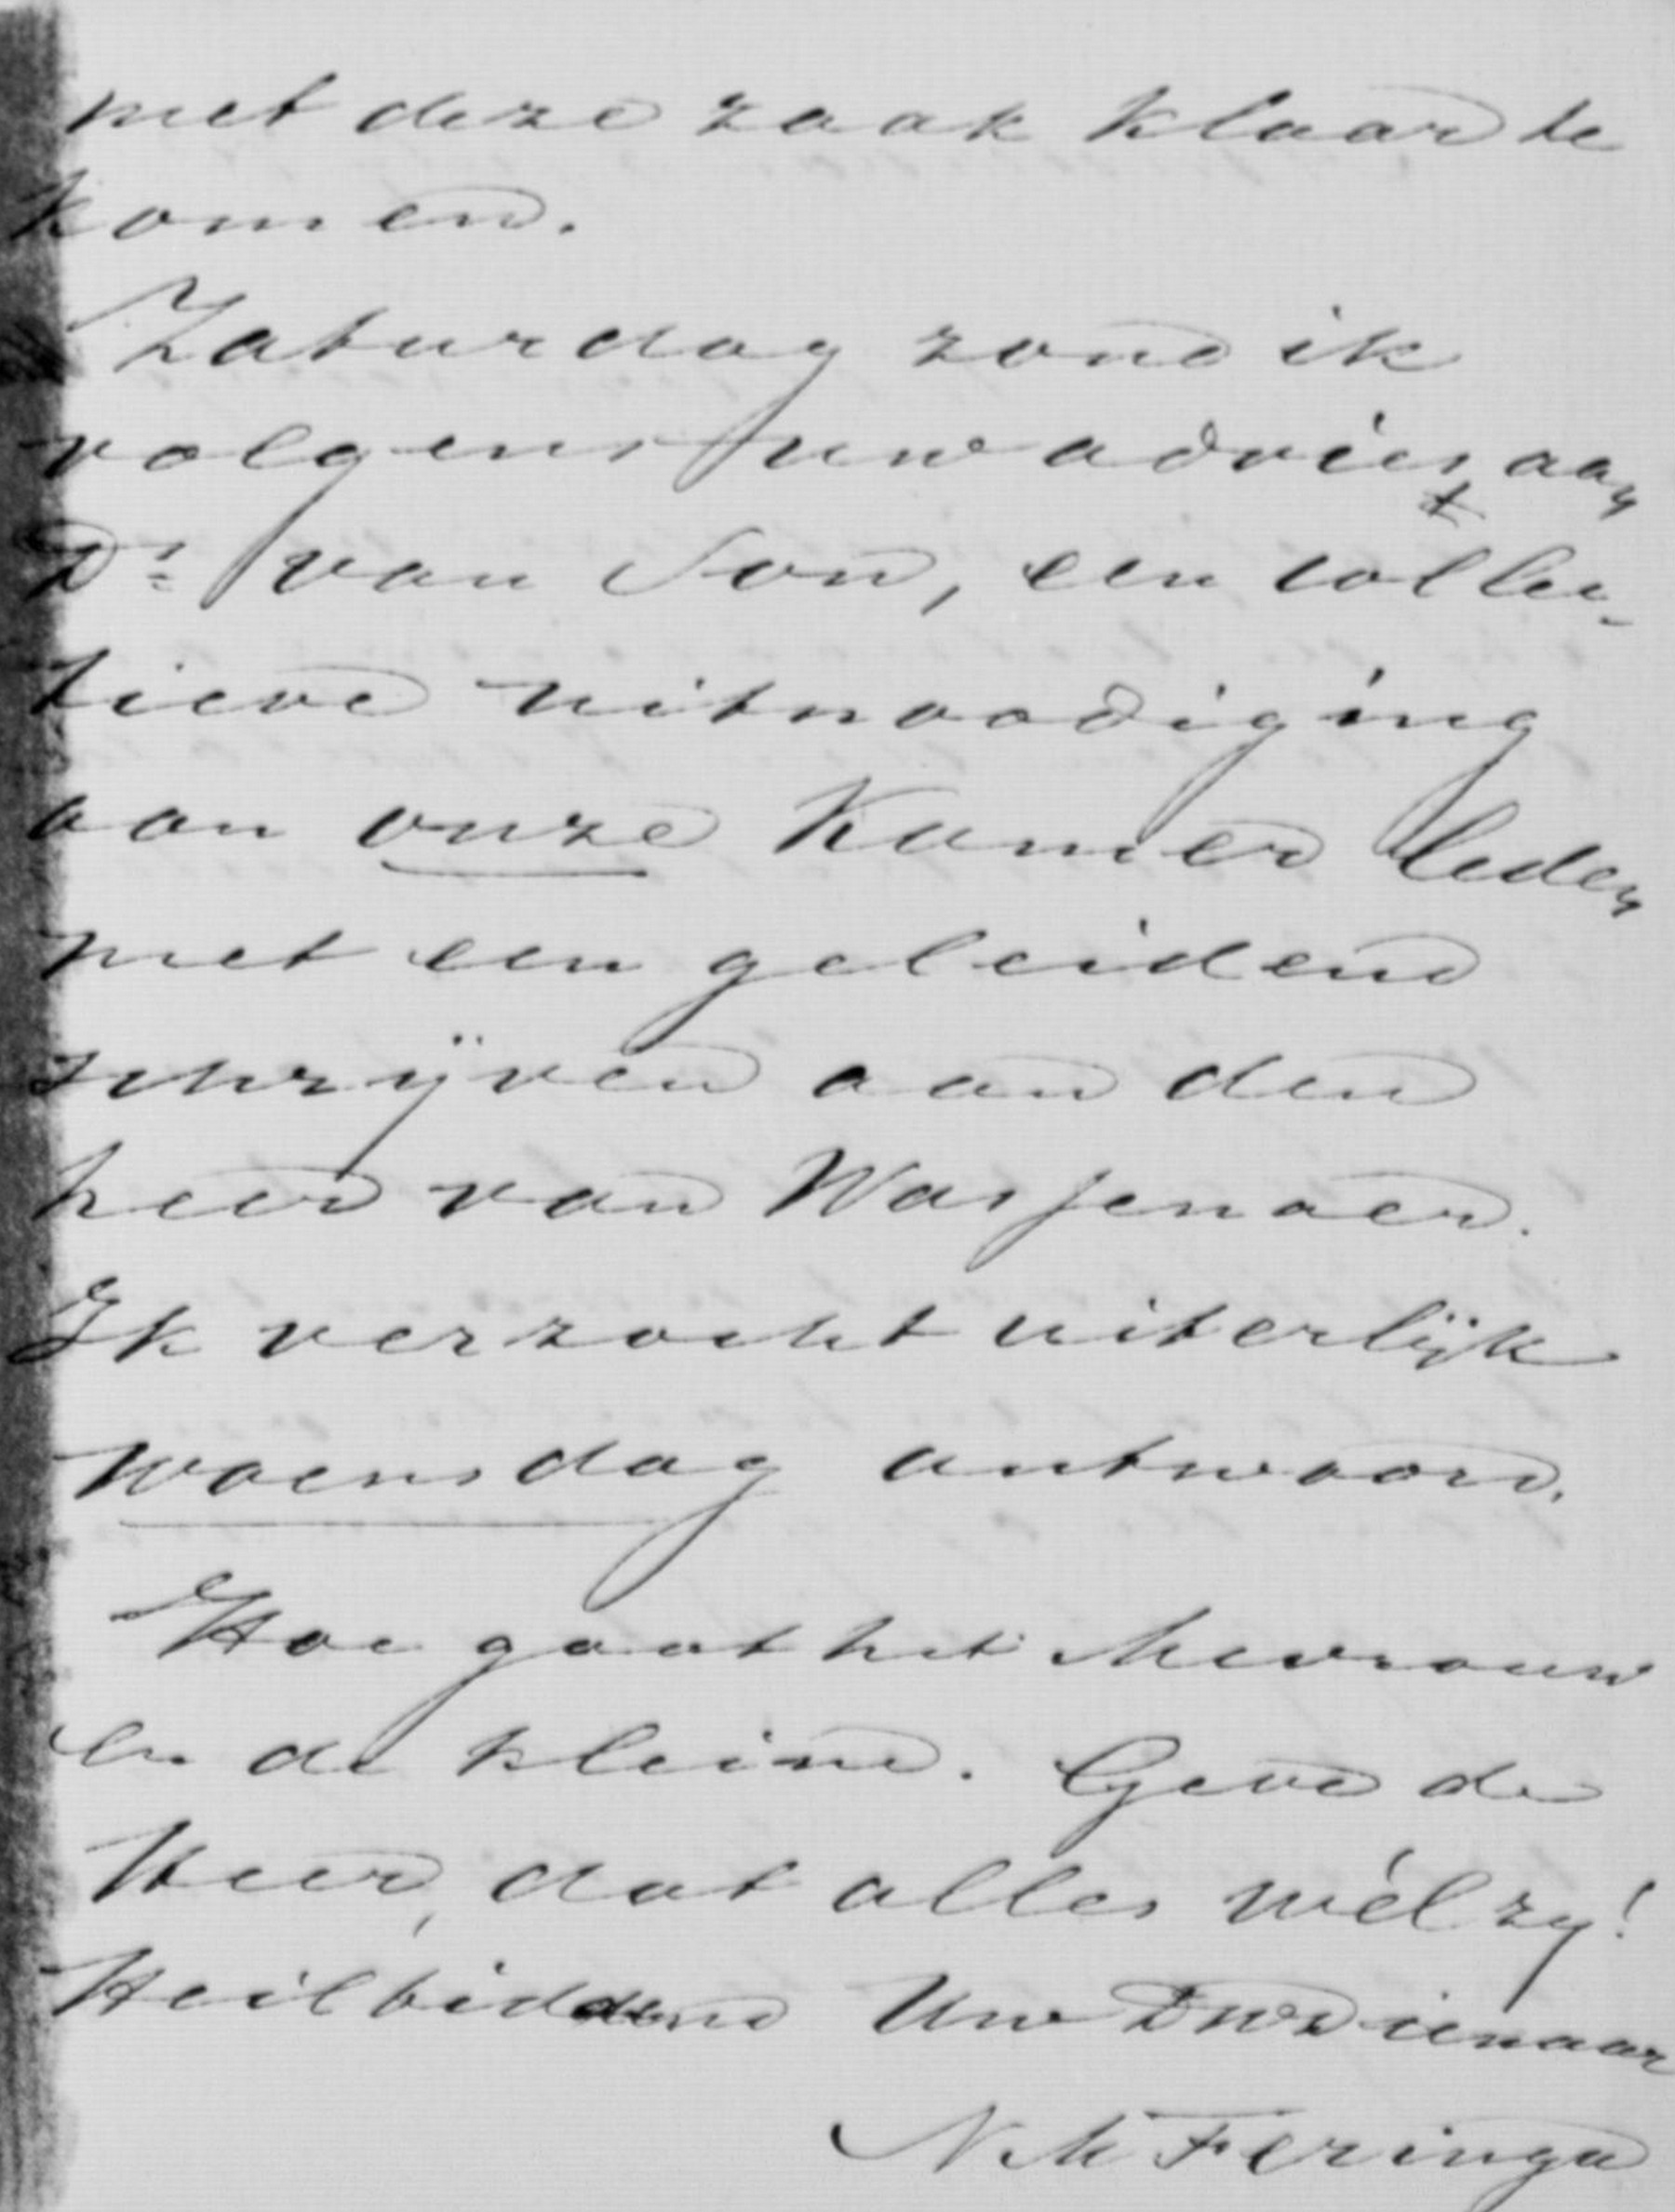 met deze zaak klaar te
komen.
Zaturdag zond ik
volgens uw advies aan
Dr van Son, een collec-
tieve uitnoodiging
aan onze Kamer leden
met een geleidend
schrijven aan den
heer van Wassenaer.
Ik verzocht uiterlijk
woensdag antwoord.
Hoe gaat het Mevrouw
en de kleine. Geve de
Heer, dat alles wél zy!
Heilbiddend Uw Dw Dienaar
N M Feringa